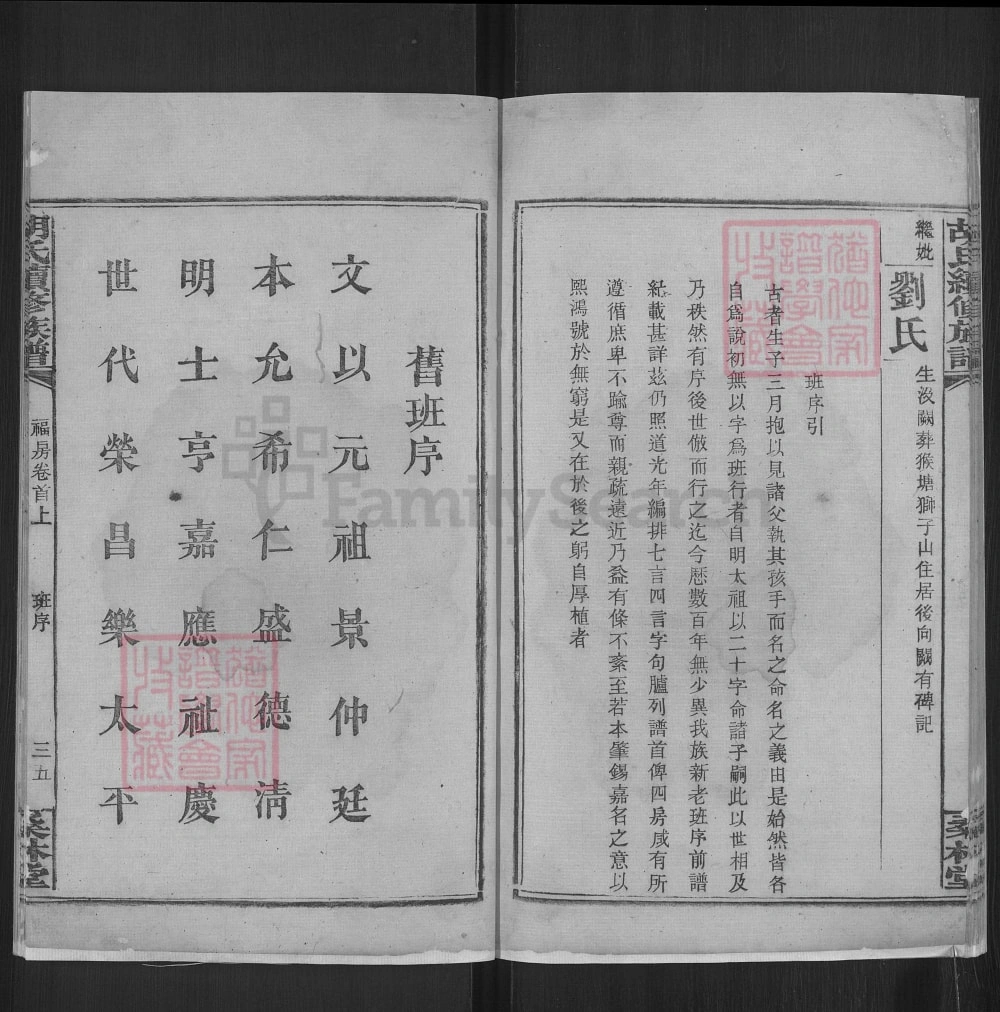 胡氏續修族譜
繼妣
劉氏
生歿闕葬猴塘獅子山住居後向闕有碑記
班序引
古者生子三月抱以見諸父執其孩手而名之命名之義由是始然皆各
自為說初無以字為班行者自明太祖以二十字命諸子嗣此以世相及
乃秩然有序後世倣而行之迄今歷數百年無少異我族新老班序前譜
紀載甚詳茲仍照道光年編排七言四言字句臚列譜首俾四房咸有所
遵循庶卑不踰尊而親疏遠近乃益有條不紊至若本肇錫嘉名之意以
熙鴻號於無窮是又在於後之躬自厚植者
舊班序
文以元祖景仲廷
本允希仁盛德清
明士亨嘉應祉慶
世代榮昌樂太平
胡氏續修族譜
福房卷首上
班序
三五
FamilySearch